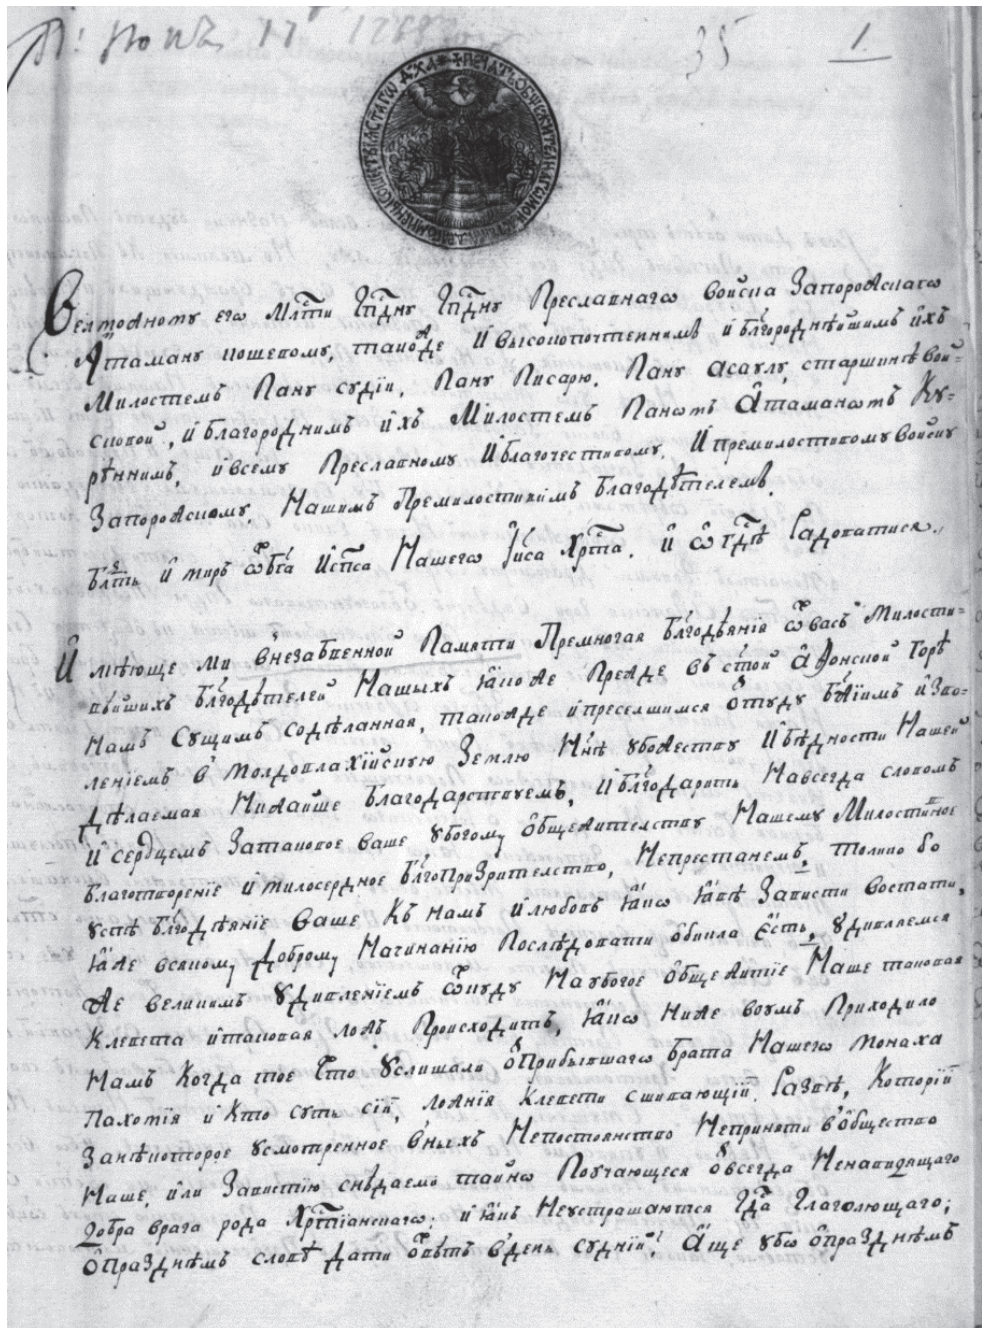 35 1.
Велможному его Млⷭ҇ти Гпⷭ҇дну Гпⷭ҇дну Преславнагѡ Войска Запорожскагѡ
Атаману кошевому, такожде и высокопочтеннимъ и бл҃городнѣйшимъ ихъ
Милостемъ Пану судіи, Пану Писарю, Пану асаулу, старшинѣ вой-
сковой, и благороднимъ ихъ Милостемъ Панѡмъ Атаманѡмъ Ку-
рѣннимъ, и всему Преславному и благочестивому, и премилостивому войску
Запорожскому Нашимъ Премилостивимъ благодѣтелемъ.
бл҃гть и миръ ѿ бг҃а и сп҃са Нашегѡ Іиⷭ҇са Хрⷭ҇та, и ѡ гдⷭ҇ѣ радоватися.
Имѣюще ми внезабвенной Памяти Премногая бл҃годѣянія ѿ васъ Милости-
вѣйшихъ бл҃годѣтелей Нашыхъ якоже Прежде въ ст҃ой Аѳонской Горѣ
Намъ Сущимъ содѣланная, такожде и преселшимся ѿтуду бж҃іимъ изво-
леніемъ в Молдовлахійскую Землю Нн҃ѣ убожеству и бѣдности Нашей
Дѣлаемая Нижайше благодарствуемъ, и бл҃годарить Навсегда словомъ
и сердцемъ За таковое ваше убогому общежителству Нашему Милостивное
благотвореніе и милосердное бл҃гопризрителство, Непрестанемъ, толико бо
усть бл҃годѣяніе ваше Къ намъ и любовъ якѡ явѣ Зависти востати,
яже всякому Доброму Начинанію Послѣдовати обикла есть, удивляемся
же великимъ удивленіемъ ѿкуду На убогое общежитіе Наше таковая
Клевета и таковая ложъ Происходитъ, якѡ Ниже воумъ Приходило
Намъ Когда тое Что услишали ѿ Прибывшагѡ брата Нашегѡ Монаха
Пахомія и Кто суть сіи, ложнія клевети сшивающіи, Развѣ, Которіи
За нѣкоторое усмотренное в ныхъ Непостоянство Неприняти в общество
Наше, или Завистію снѣдаеми тайнѡ Поучающеся ѿ всегда Ненавидящагѡ
добра врага рода Хрⷭ҇тіанскагѡ; и якъ Неустрашаются Гдⷭ҇а Глаголющаго;
ѿ Празднѣмъ словѣ Дати ѿвѣтъ в день судній! Аще убѡ ѿ праздиѣмъ